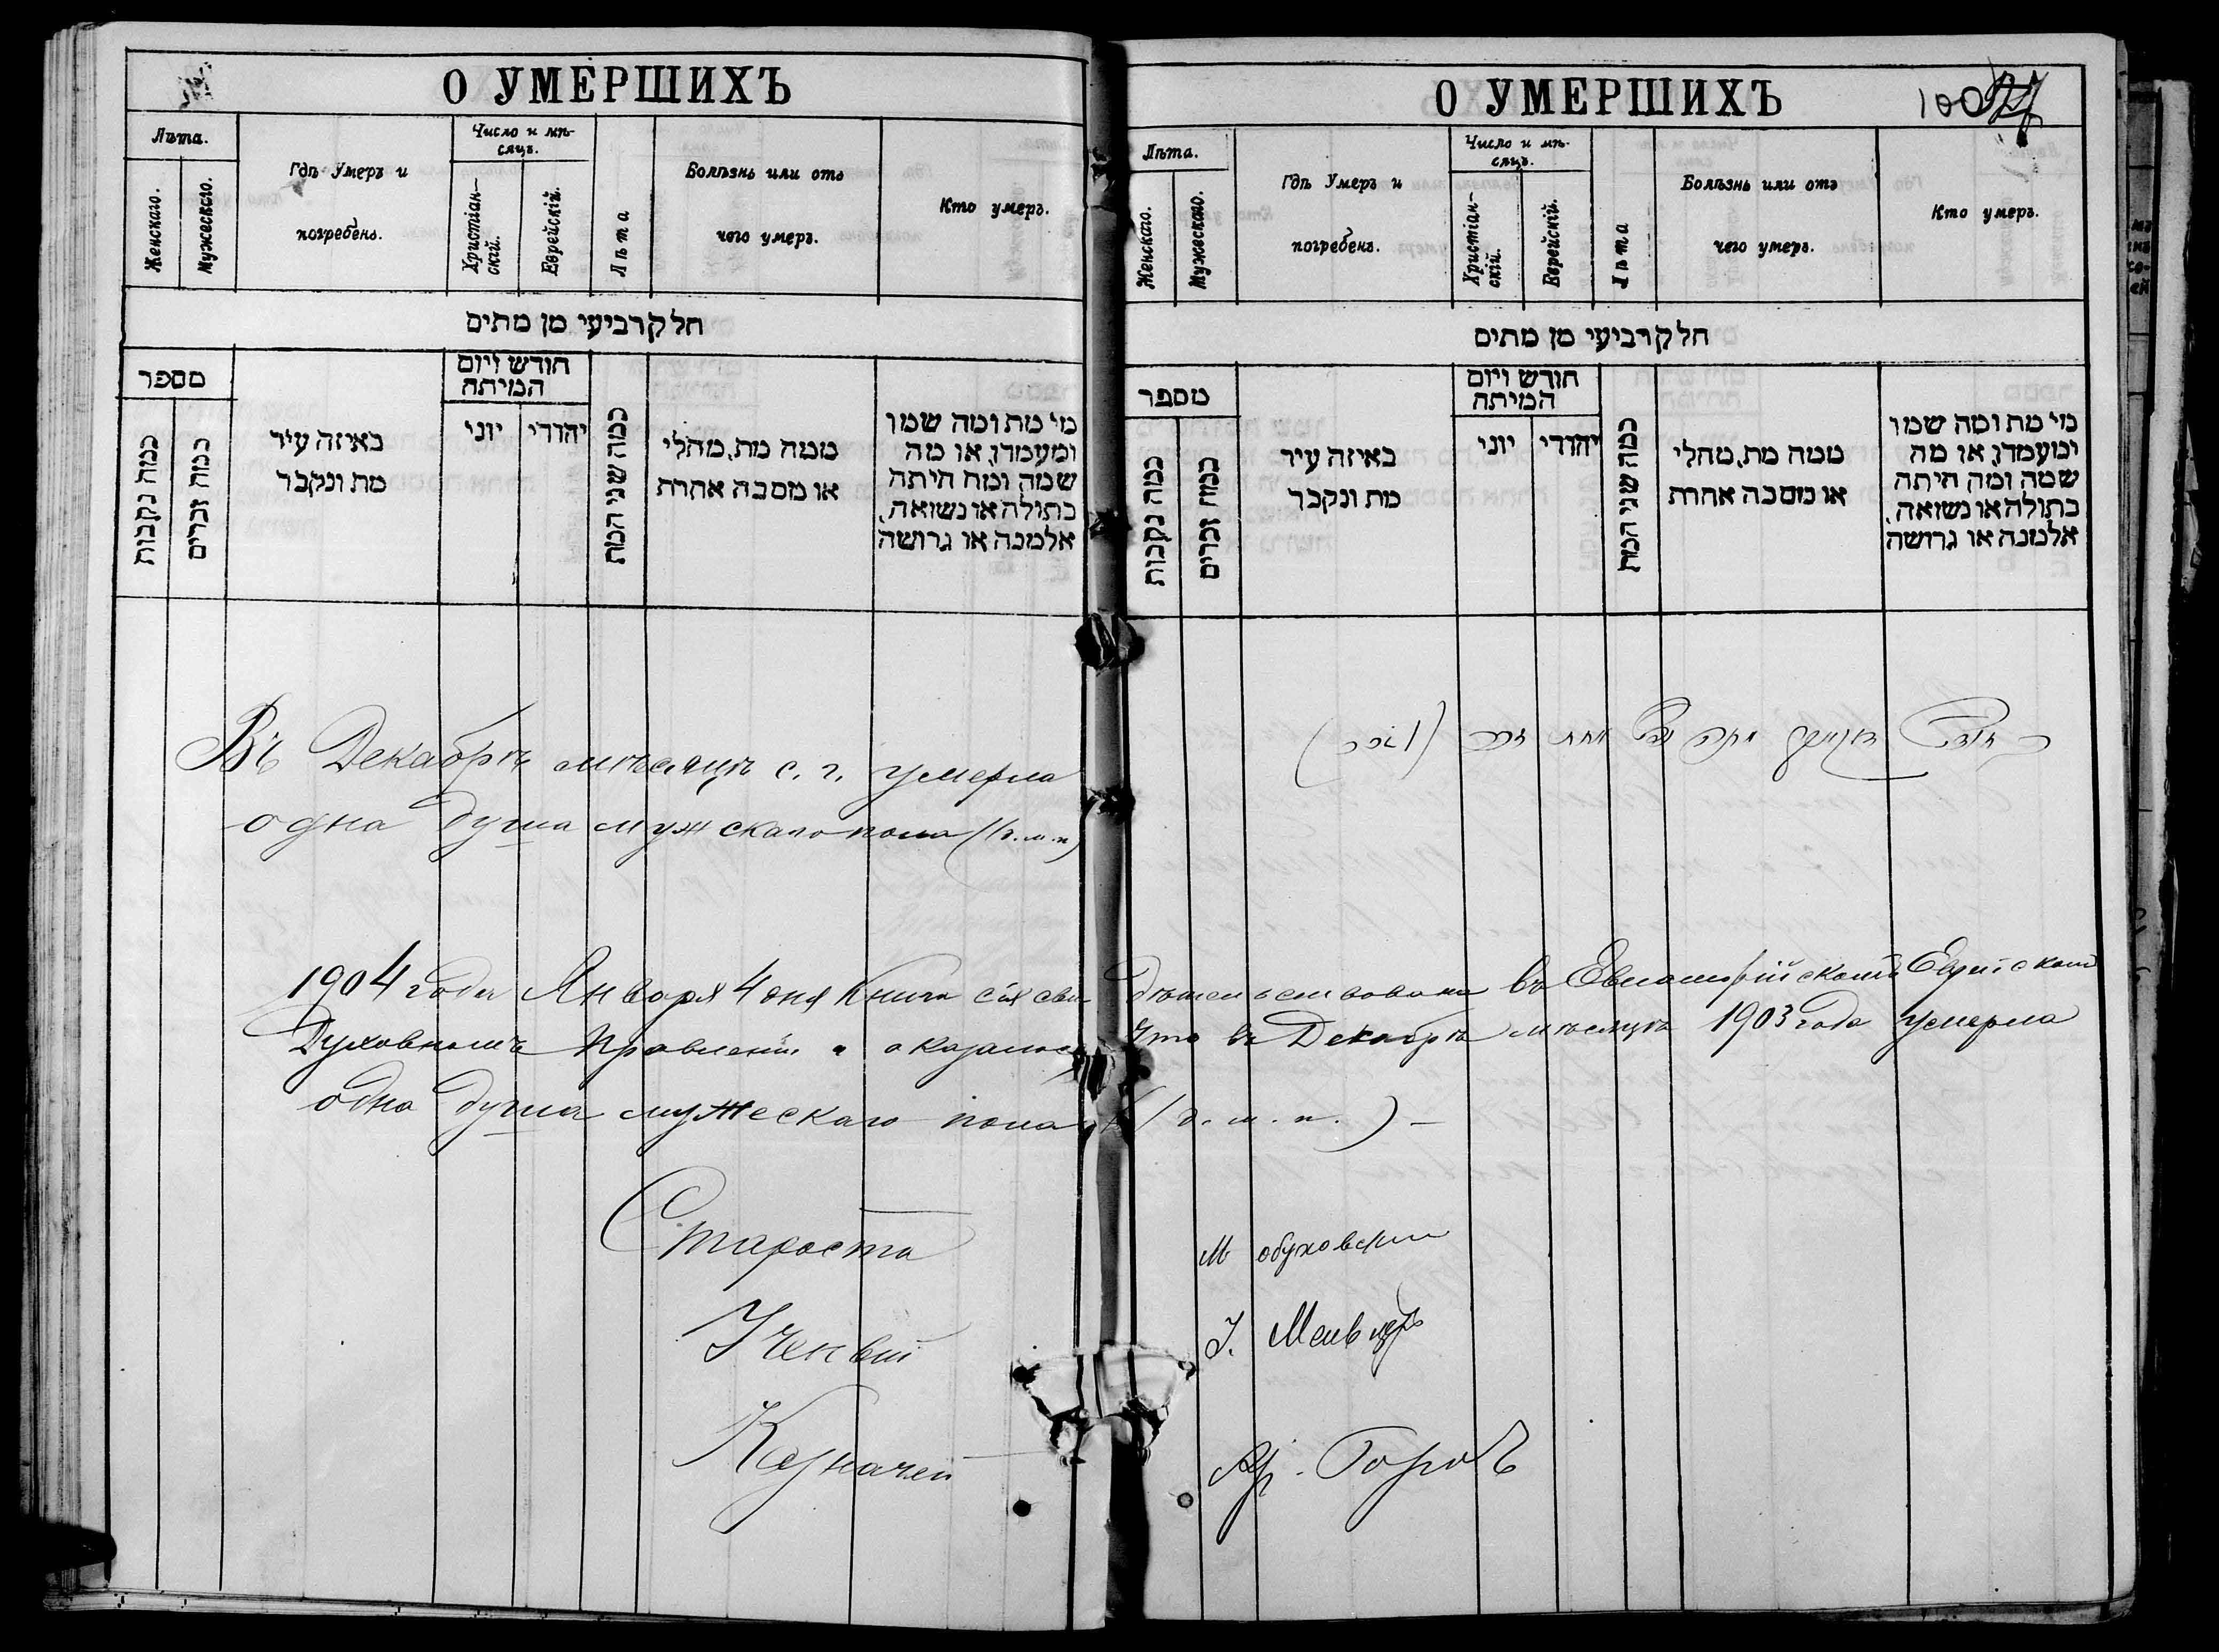 О УМЕРШИХЪ
Лѣта.
Женскаго.
Мужескаго.
Гдѣ Умеръ и
погребенъ.
Число и мѣ-
сяцъ.
Христіан-
скій.
Еврейскій.
Лѣта
Болѣзнь или отъ
чего умеръ.
Кто умеръ.
חלק רביעי מן מתים
מספר
כמה נקבות
כמה זכרים
באיזה עיר
מת ונקבר
חודש ויום
המיתה
יוני
יהודי
כמה שני המת
ממה מת, מחלי
או מסבה אחרת
מי מת ומה שמו
ומעמדו, או מה
שמה ומה היתה
בתולה או נשואה,
אלמנה או גרושה
Въ Декабрѣ мѣсяцѣ с. г. умерла
одна душа мужскаго пола (1 д. м. п)
О УМЕРШИХЪ
100
Лѣта.
Женскаго.
Мужескаго.
Гдѣ Умеръ и
погребенъ.
Число и мѣ-
сяцъ.
Христіан-
скій.
Еврейскій.
Лѣта
Болѣзнь или отъ
чего умеръ.
Кто умеръ.
חלק רביעי מן מתים
מספר
כמה נקבות
כמה זכרים
באיזה עיר
מת ונקבר
חודש ויום
המיתה
יוני
יהודי
כמה שני המת
ממה מת, מחלי
או מסבה אחרת
מי מת ומה שמו
ומעמדו, או מה
שמה ומה היתה
בתולה או נשואה,
אלמנה או גרושה
1904 года Января 4 дня Книга сія свидѣтельствована въ Евпаторійскомъ Еврейскомъ
Духовномъ Правленіи и оказалось что въ Декабрѣ мѣсяцѣ 1903 года умерла
одна душа мужескаго пола (1 д. м. п.) –
Староста М Обуховскій
Ученый І.
Казначей